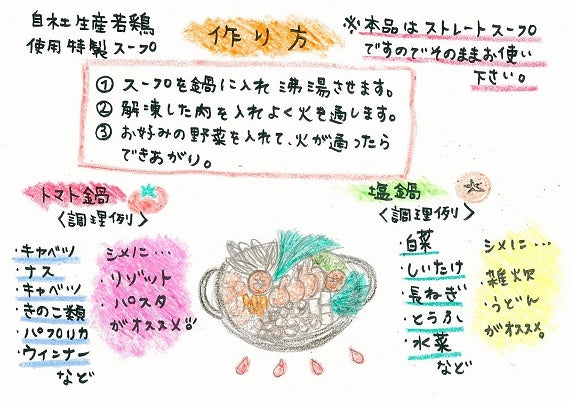 自社生産若鶏
使用特製スープ
作り方
※本品はストレートスープ
ですのでそのままお使い
下さい。
① スープを鍋に入れ沸湯させます。
② 解凍した肉を入れよく火を通します。
③ お好みの野菜を入れて、火が通ったら
できあがり。
トマト鍋
〈調理例〉
・キャベツ
・ナス
・キャベツ
・きのこ類
・パプリカ
・ウィンナー
など
シメに…
・リゾット
・パスタ
がオススメ♡。
塩鍋
〈調理例〉
・白菜
・しいたけ
・長ねぎ
・とうふ
・水菜
など
シメに…
・雑炊
・うどん
がオススメ。